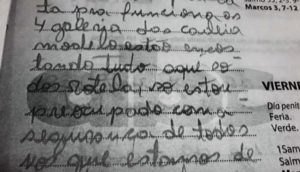 ta pra funciona os
4 galeria dos cadeia
modelo estao encos
tando tudo aque co
dos rotelaj so estou
preocupado com a
segurança de todos
nos que estamos de
Marcos 3, 7-12
VIERNE
Día penit
Feria.
Verde.
1Sam
Salm